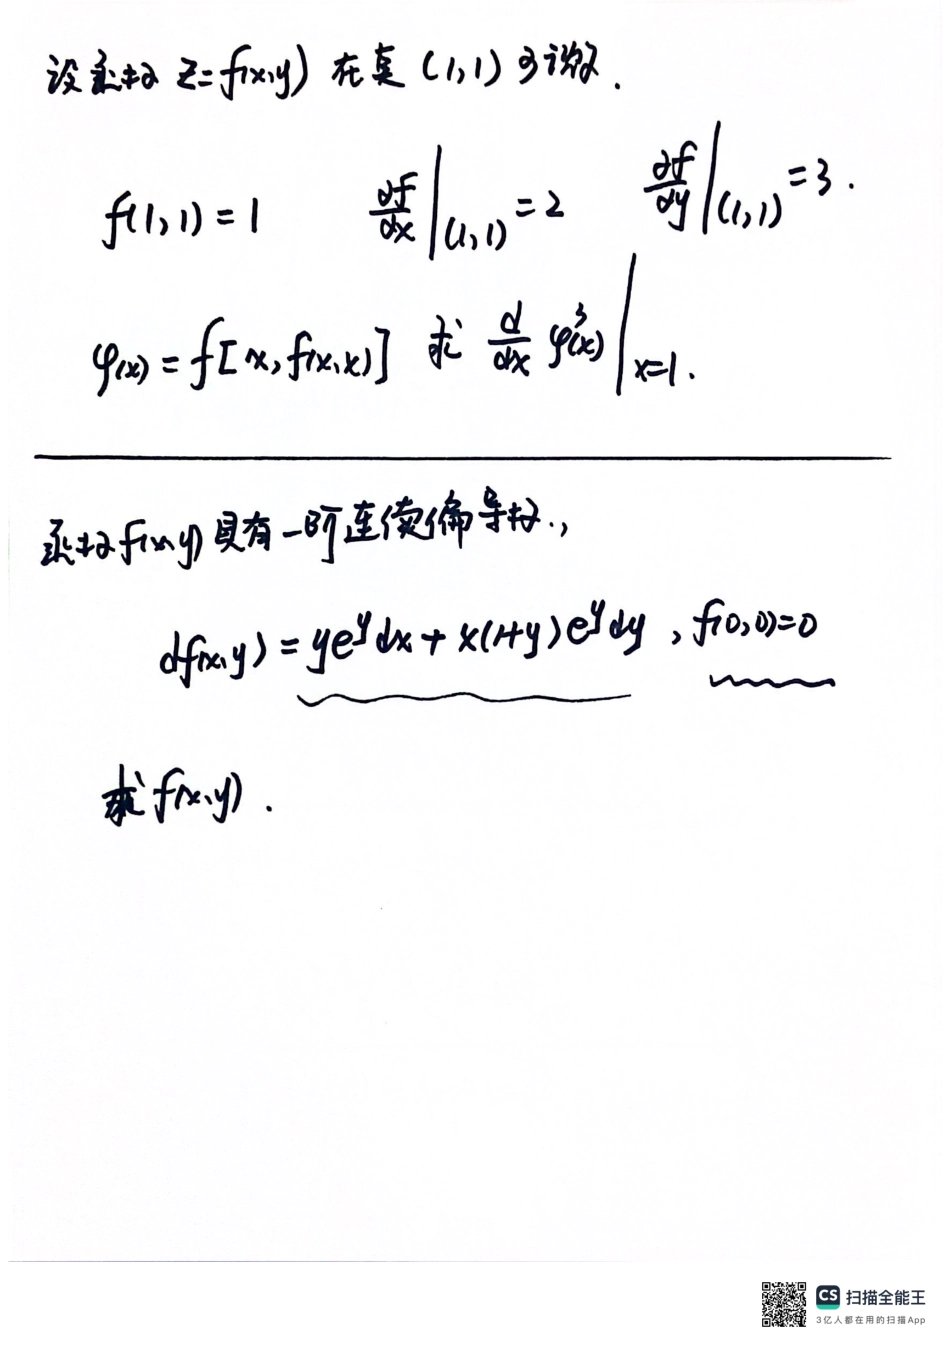 设函数 z=f(x,y) 在点 (1,1) 可微.
f(1,1)=1 ∂f/∂x|(1,1)=2 ∂f/∂y|(1,1)=3.
φ(x)=f[x,f(x,x)] 求 d/dx φ³(x)|x=1.
函数f(x,y)具有一阶连续偏导数.,
df(x,y)=ye^y dx+x(1+y)e^y dy ,f(0,0)=0
求f(x,y).
CS 扫描全能王
3亿人都在用的扫描App